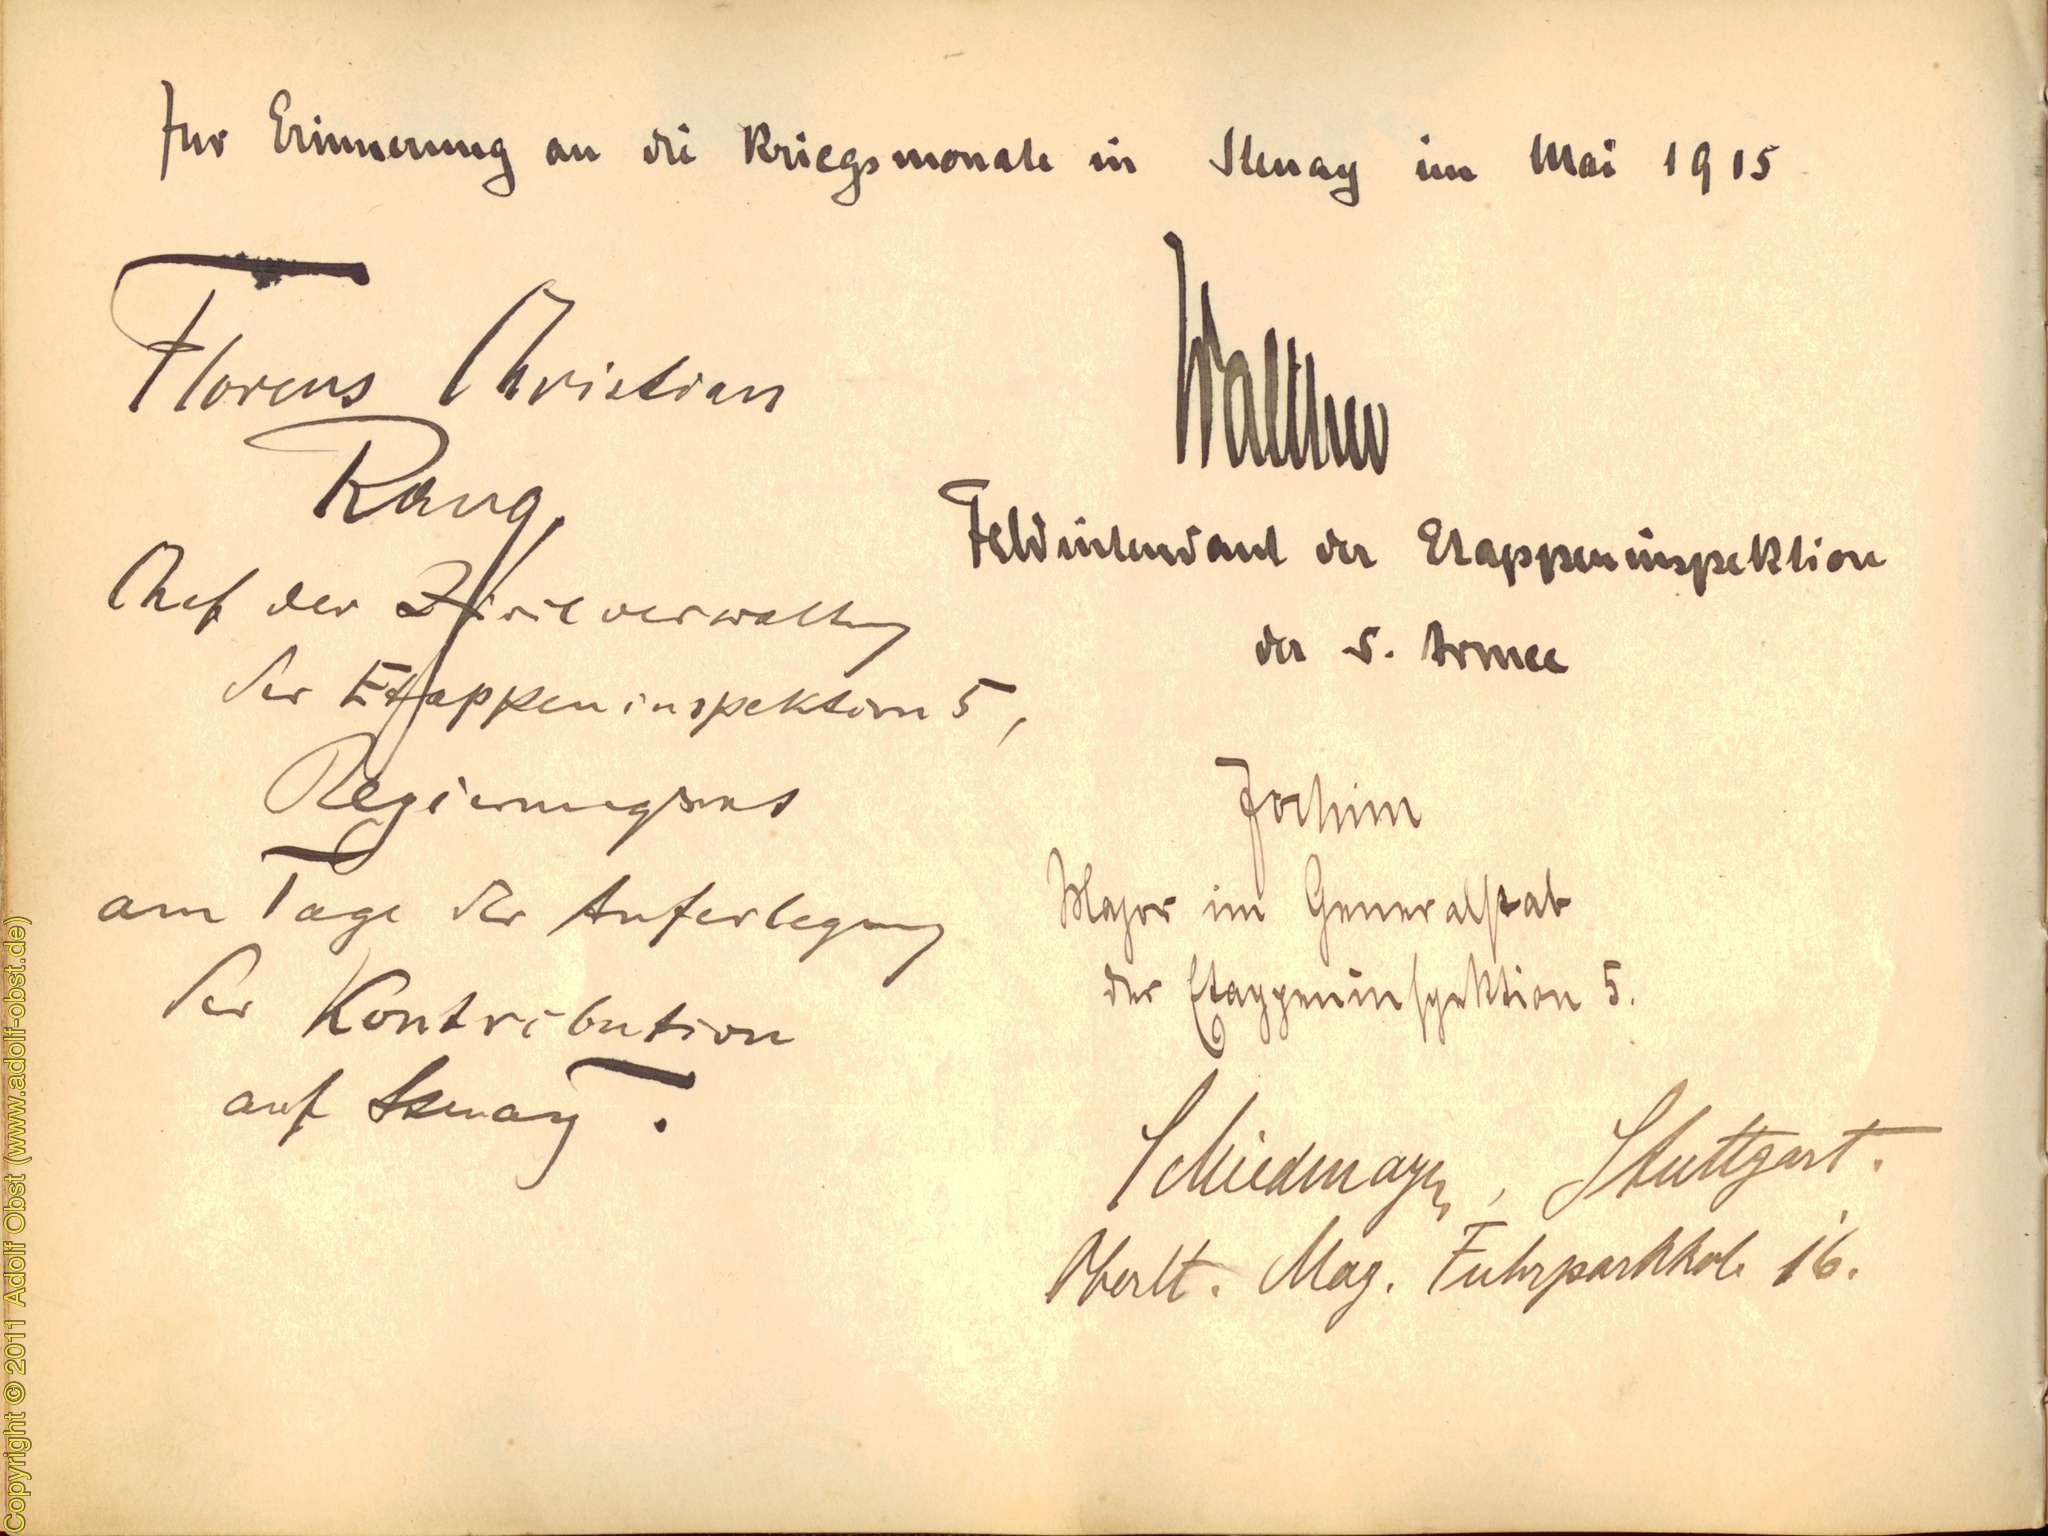 Zur Erinnerung an die Kriegsmonate in Stenay im Mai 1915
Florens Christian
Rang
Chef der Zivilverwaltung
der Etappeninspektion 5,
Regierungsrat
am Tage der Auferlegung
der Kontribution
auf Stenay.
Walther
Feldintendant der Etappeninspektion
der 5. Armee
Jochim
Major im Generalstab
der Etappeninspektion 5.
Schiedmayer, Stuttgart.
Oberlt. Mag. Fuhrparkkol. 16.
Copyright © 2011 Adolf Obst (www.adolf-obst.de)